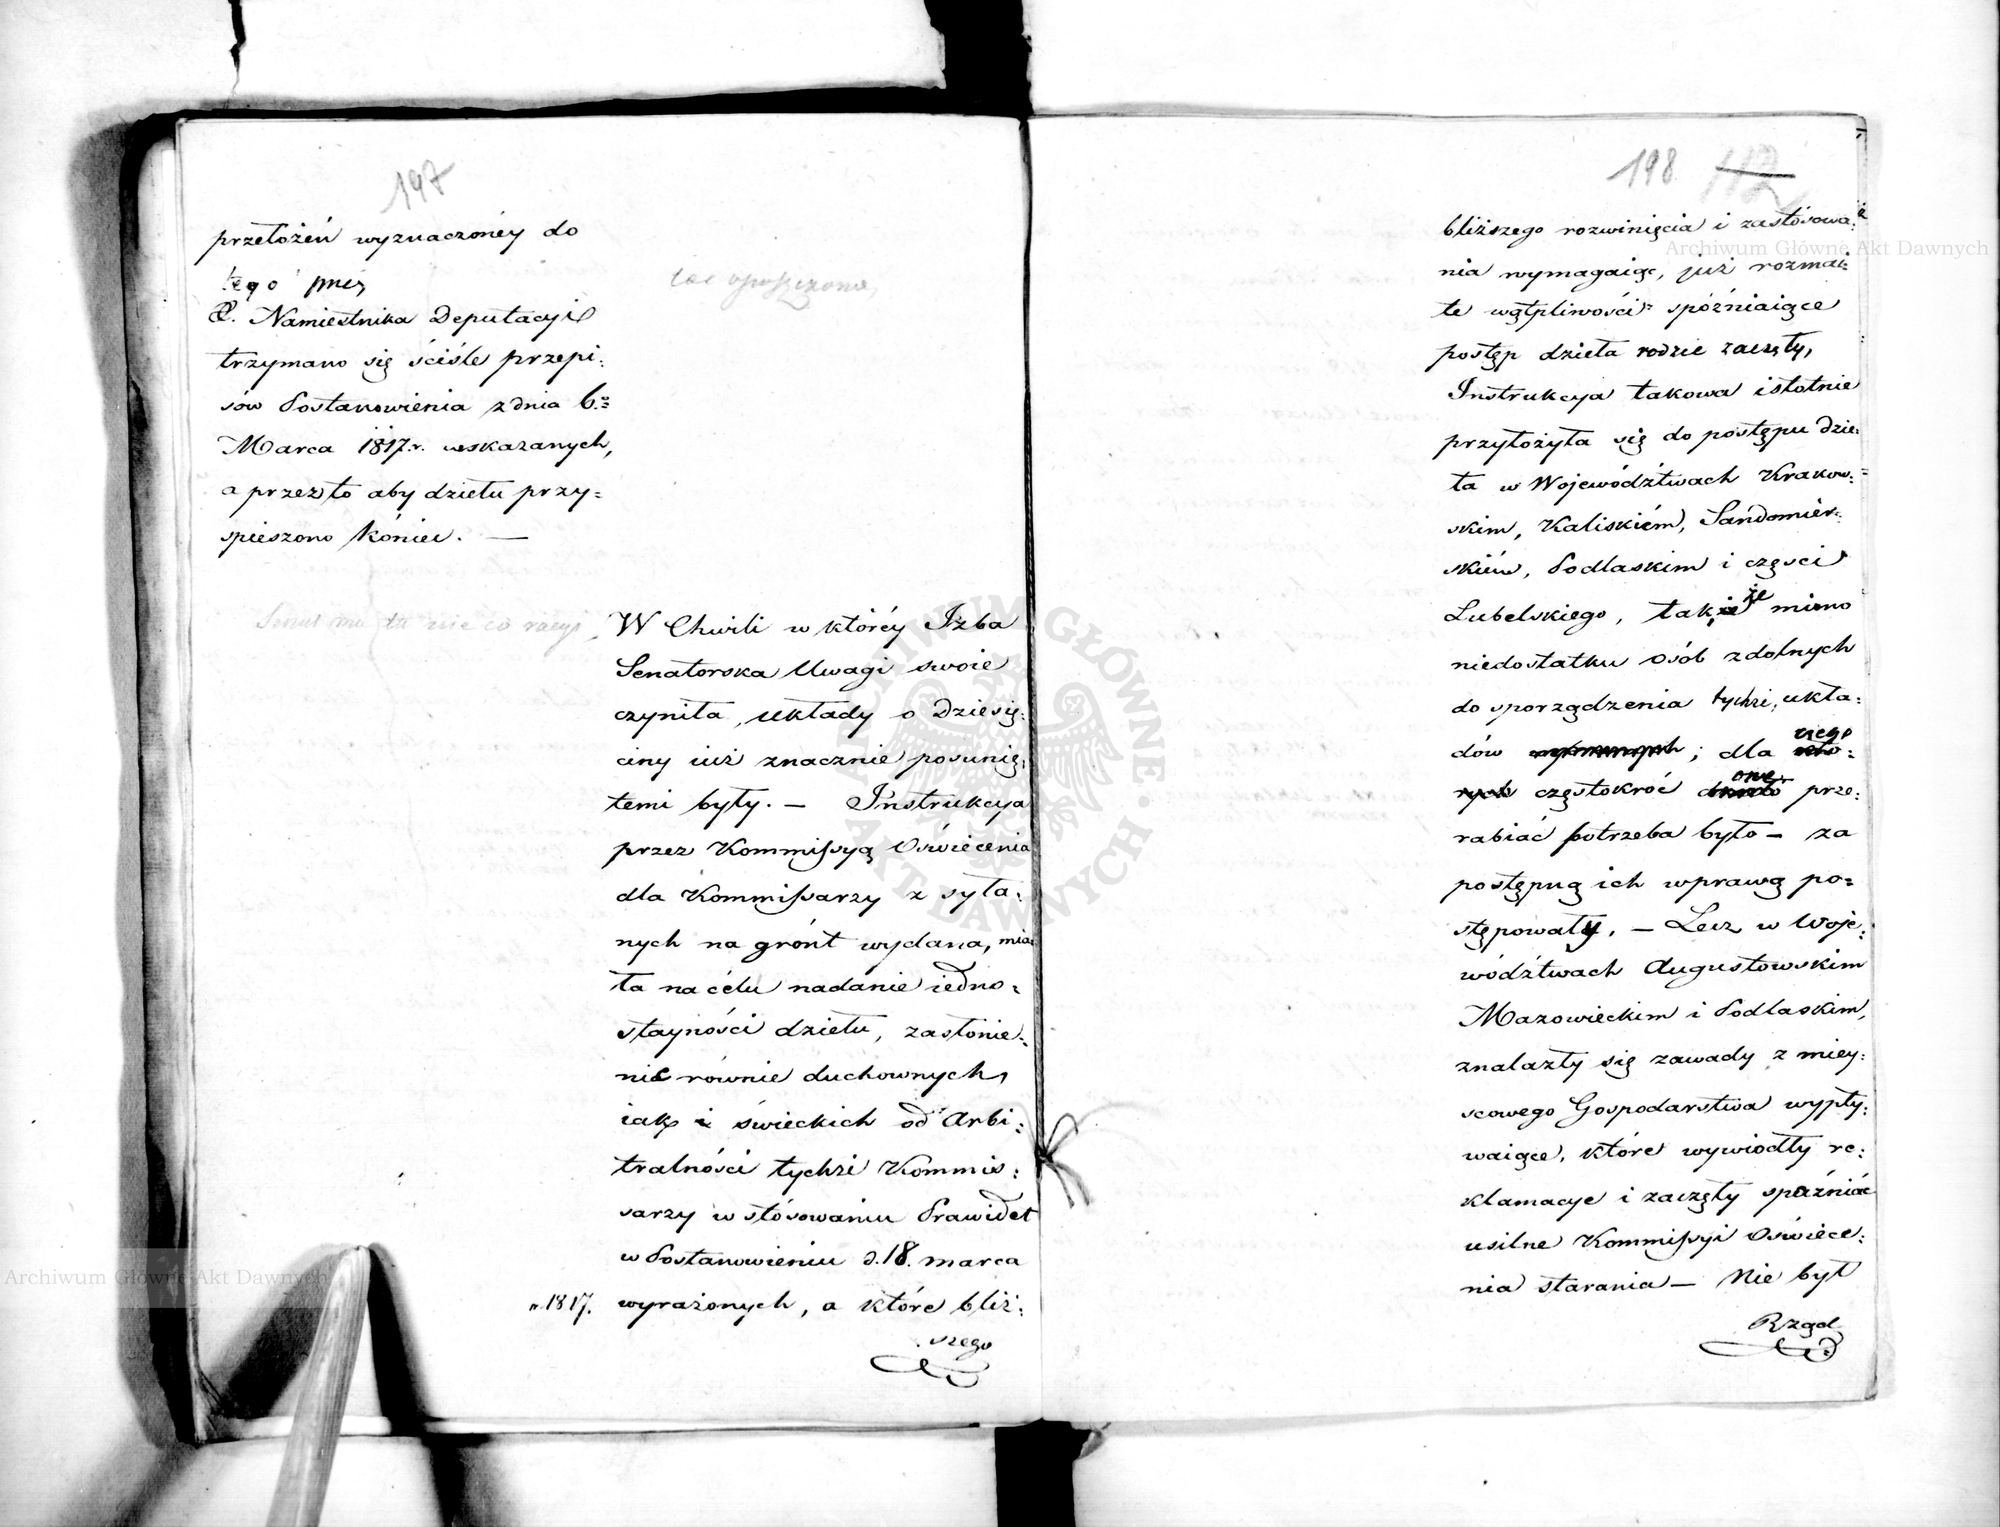 197
przełożeń wyznaczonéy do
tego przez
X. Namiestnika Deputacyi
trzymano się ściśle przepi:
sów Postanowienia z dnia 6.
Marca 1817. r. wskazanych,
a przez to aby dziełu przy=
spieszono koniec. —
opuszczone
Senat ma tu nie co racyi,
W Chwili w któréy Izba
Senatorska Uwagi swoie
czyniła, układy o Dziesię:
ciny iuż znacznie posunię:
temi były. — Instrukcya
przez Kommissyą Oświécenia
dla Kommissarzy z syła:
nych na grónt wydana, mia:
ła na célu nadanie iedno:
stayności dziełu, zasłonie:
nie równie duchownych,
iak i świeckich od Arbi:
tralności tychże Kommis:
sarzy w stósowaniu Prawideł
w Postanowieniu d. 18. marca
r. 1817. wyrażonych, a które bliż:
szego
198 112
bliższego rozwinięcia i zastósowa:
nia wymagaiąc, już rozmai:
te wątpliwości spóźniaiące
postęp dzieła rodzić zaczęły,
Instrukcya takowa istotnie
przyłożyła się do postępu dzie:
ła w Województwach Krakow:
skim, Kaliskiém, Sandomier:
skiém, Podlaskim i części
Lubelskiego, tak, że mimo
niedostatku osób zdolnych
do sporządzenia tychże, ukła:
dów ; dla czego
częstokróć one prze:
rabiać potrzeba było — za
postępną ich wprawą po=
stępowały, — Lecz w Woje:
wództwach Augustowskim
Mazowieckim i Podlaskim,
znalazły się zawady z miey:
scowego Gospodarstwa wypły:
waiące, które wywiodły re:
klamacye i zaczęły spóźniać
usilne Kommissyi Oświéce:
nia starania — Nie był
Rząd
Archiwum Główne Akt Dawnych
Archiwum Główne Akt Dawnych
ARCHIWUM GŁÓWNE AKT DAWNYCH